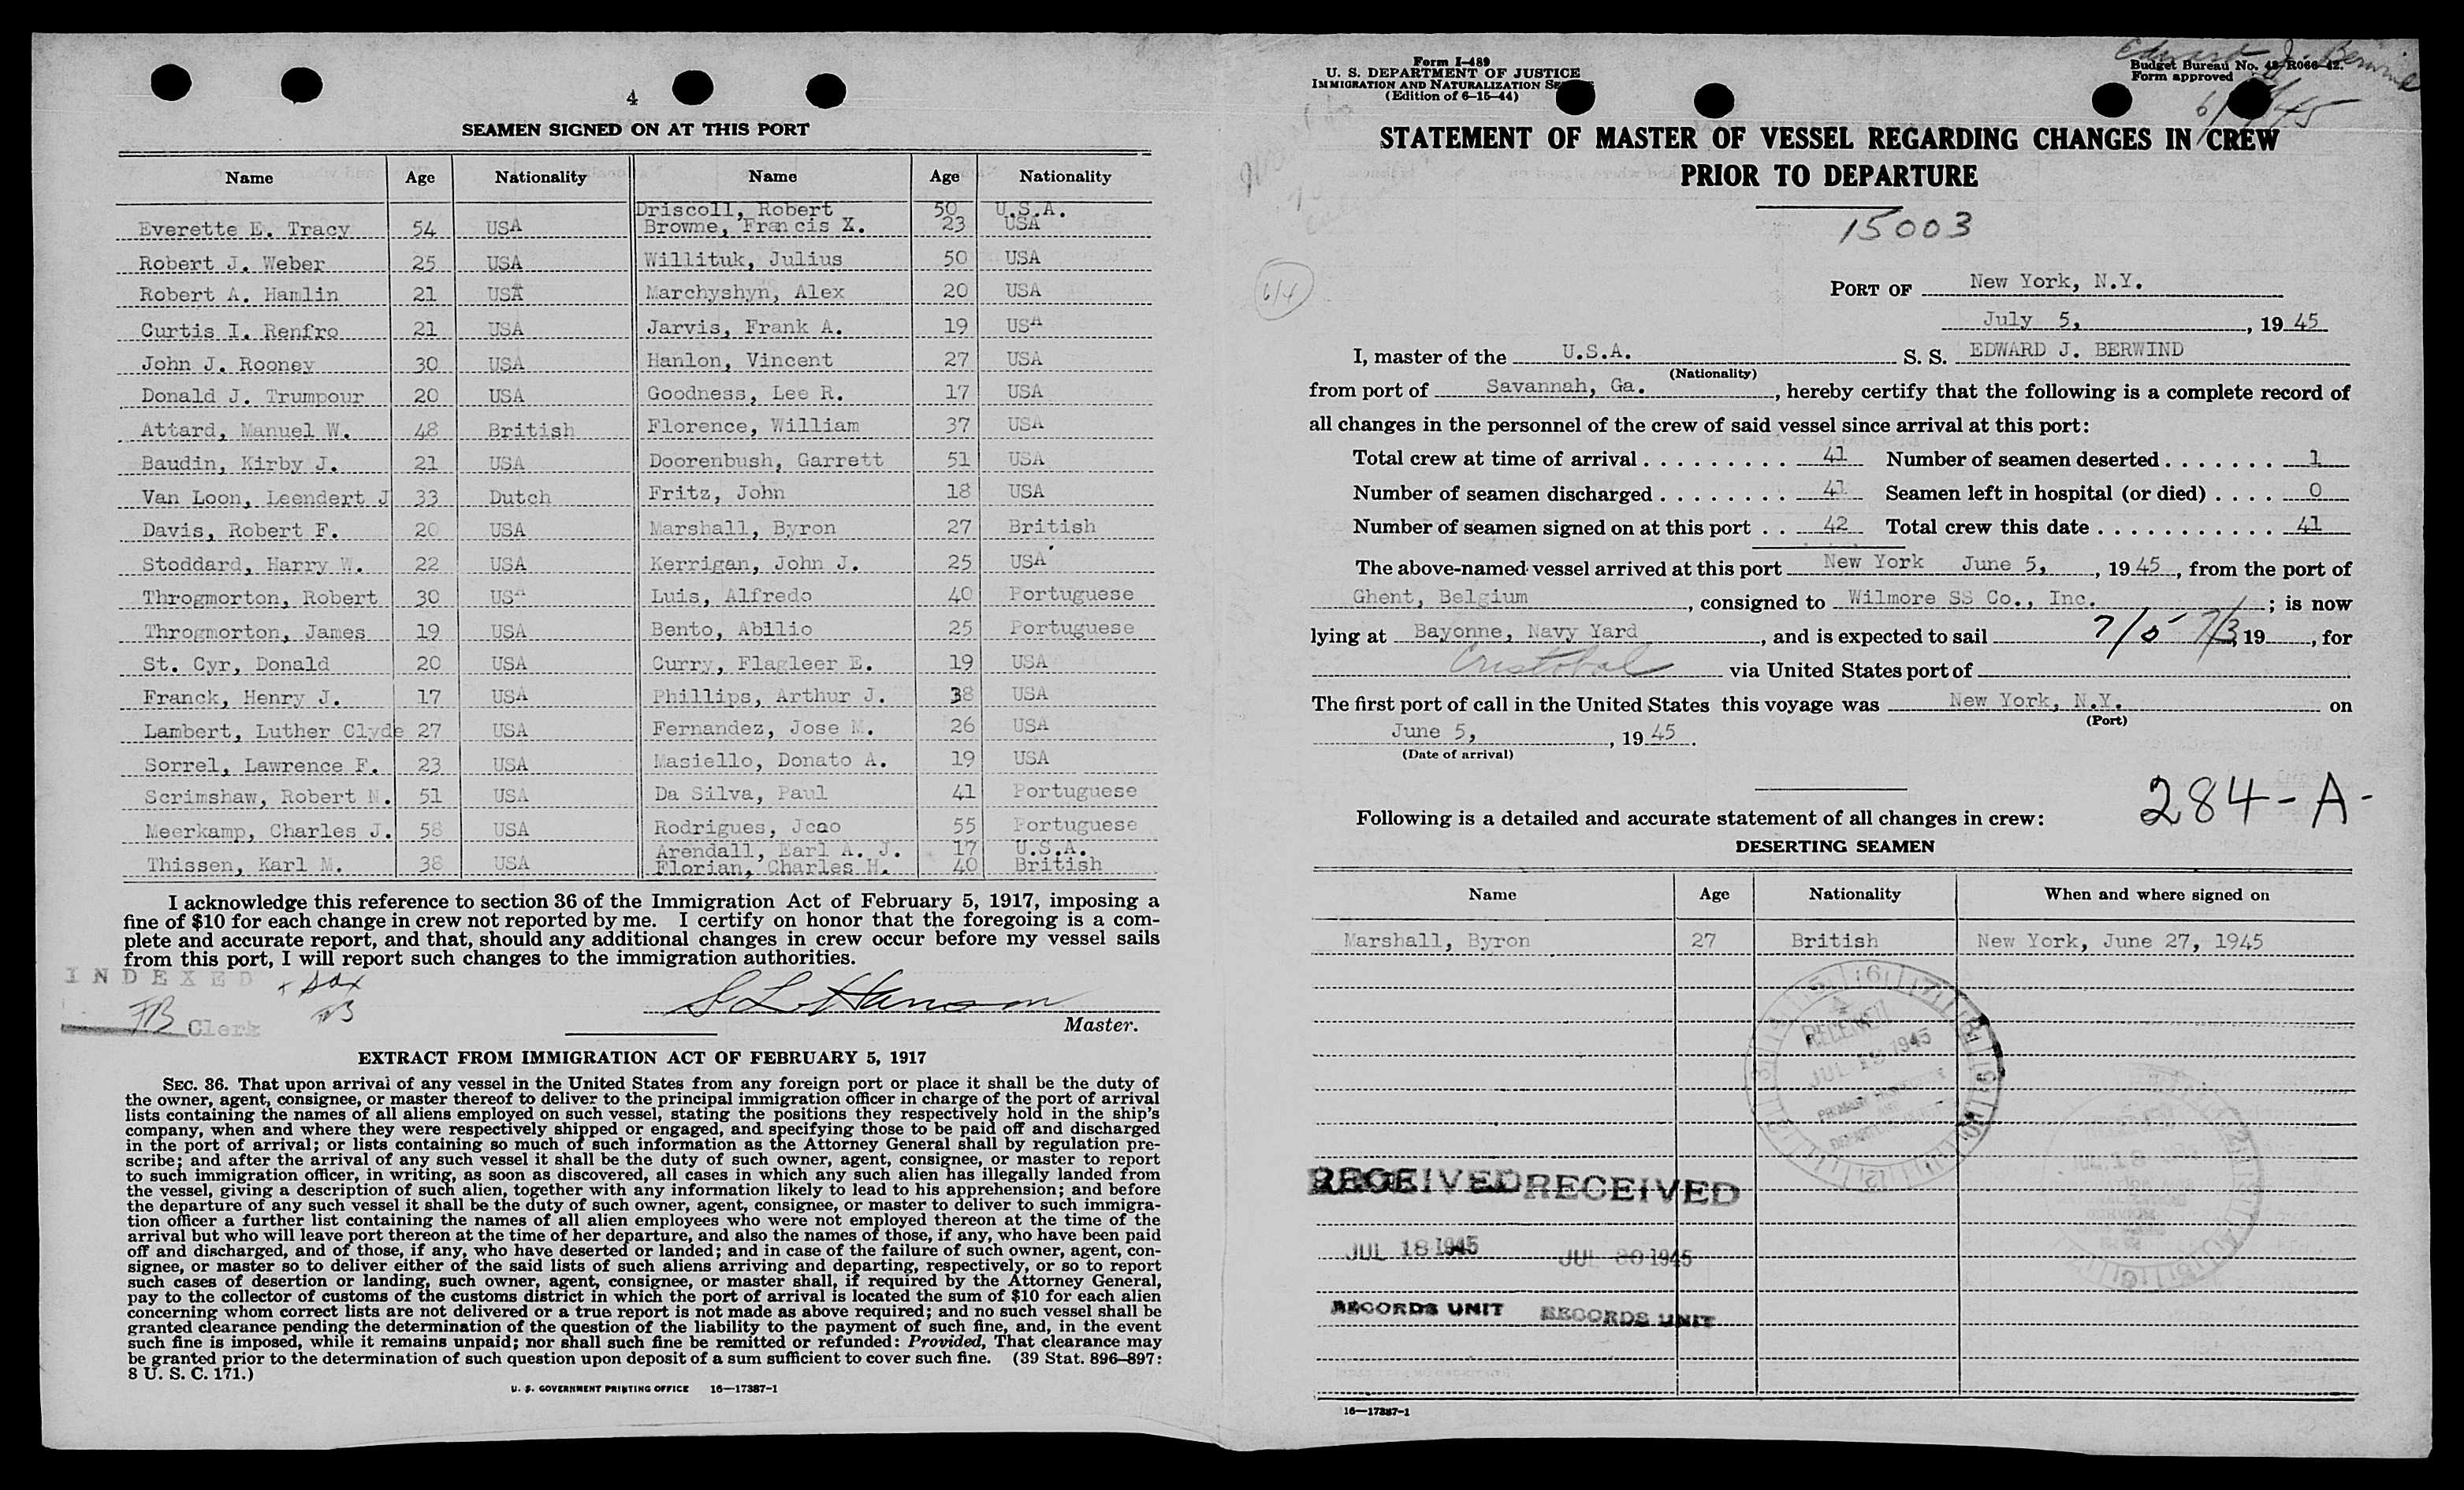 4
SEAMEN SIGNED ON AT THIS PORT
Name Age Nationality Name Age Nationality
Driscoll, Robert 50 U.S.A.
Everette E. Tracy 54 USA Browne, Francis X. 23 USA
Robert J. Weber 25 USA Willituk, Julius 50 USA
Robert A. Hamlin 21 USA Marchyshyn, Alex 20 USA
Curtis I. Renfro 21 USA Jarvis, Frank A. 19 USA
John J. Rooney 30 USA Hanlon, Vincent 27 USA
Donald J. Trumpour 20 USA Goodness, Lee R. 17 USA
Attard, Manuel W. 48 British Florence, William 37 USA
Baudin, Kirby J. 21 USA Doorenbush, Garrett 51 USA
Van Loon, Leendert J 33 Dutch Fritz, John 18 USA
Davis, Robert F. 20 USA Marshall, Byron 27 British
Stoddard, Harry W. 22 USA Kerrigan, John J. 25 USA
Throgmorton, Robert 30 USA Luis, Alfredo 40 Portuguese
Throgmorton, James 19 USA Bento, Abilio 25 Portuguese
St. Cyr, Donald 20 USA Curry, Flagleer E. 19 USA
Franck, Henry J. 17 USA Phillips, Arthur J. 38 USA
Lambert, Luther Clyde 27 USA Fernandez, Jose M. 26 USA
Sorrel, Lawrence F. 23 USA Masiello, Donato A. 19 USA
Scrimshaw, Robert N. 51 USA Da Silva, Paul 41 Portuguese
Meerkamp, Charles J. 58 USA Rodrigues, Joao 55 Portuguese
Arendall, Earl A. J. 17 U.S.A.
Thissen, Karl M. 38 USA Florian, Charles H. 40 British
I acknowledge this reference to section 36 of the Immigration Act of February 5, 1917, imposing a
fine of $10 for each change in crew not reported by me. I certify on honor that the foregoing is a com-
plete and accurate report, and that, should any additional changes in crew occur before my vessel sails
from this port, I will report such changes to the immigration authorities.
INDEXED
FB Clerk
S L Hanson
Master.
EXTRACT FROM IMMIGRATION ACT OF FEBRUARY 5, 1917
SEC. 36. That upon arrival of any vessel in the United States from any foreign port or place it shall be the duty of
the owner, agent, consignee, or master thereof to deliver to the principal immigration officer in charge of the port of arrival
lists containing the names of all aliens employed on such vessel, stating the positions they respectively hold in the ship's
company, when and where they were respectively shipped or engaged, and specifying those to be paid off and discharged
in the port of arrival; or lists containing so much of such information as the Attorney General shall by regulation pre-
scribe; and after the arrival of any such vessel it shall be the duty of such owner, agent, consignee, or master to report
to such immigration officer, in writing, as soon as discovered, all cases in which any such alien has illegally landed from
the vessel, giving a description of such alien, together with any information likely to lead to his apprehension; and before
the departure of any such vessel it shall be the duty of such owner, agent, consignee, or master to deliver to such immigra-
tion officer a further list containing the names of all alien employees who were not employed thereon at the time of the
arrival but who will leave port thereon at the time of her departure, and also the names of those, if any, who have been paid
off and discharged, and of those, if any, who have deserted or landed; and in case of the failure of such owner, agent, con-
signee, or master so to deliver either of the said lists of such aliens arriving and departing, respectively, or so to report
such cases of desertion or landing, such owner, agent, consignee, or master shall, if required by the Attorney General,
pay to the collector of customs of the customs district in which the port of arrival is located the sum of $10 for each alien
concerning whom correct lists are not delivered or a true report is not made as above required; and no such vessel shall be
granted clearance pending the determination of the question of the liability to the payment of such fine, and, in the event
such fine is imposed, while it remains unpaid; nor shall such fine be remitted or refunded: Provided, That clearance may
be granted prior to the determination of such question upon deposit of a sum sufficient to cover such fine. (39 Stat. 896–897:
8 U. S. C. 171.)
U. S. GOVERNMENT PRINTING OFFICE 16—17387-1
Form I-489
U. S. DEPARTMENT OF JUSTICE
IMMIGRATION AND NATURALIZATION SE
(Edition of 6-15-44)
Edward J. Berwind
Budget Bureau No. 43-R066-42.
Form approved
STATEMENT OF MASTER OF VESSEL REGARDING CHANGES IN CREW
PRIOR TO DEPARTURE
15003
614
PORT OF New York, N.Y.
July 5, , 19 45
I, master of the U.S.A. S. S. EDWARD J. BERWIND
(Nationality)
from port of Savannah, Ga. , hereby certify that the following is a complete record of
all changes in the personnel of the crew of said vessel since arrival at this port:
Total crew at time of arrival . . . . . . . . . 41 Number of seamen deserted . . . . . . . 1
Number of seamen discharged . . . . . . . . 41 Seamen left in hospital (or died) . . . . 0
Number of seamen signed on at this port . . 42 Total crew this date . . . . . . . . . . . 41
The above-named vessel arrived at this port New York June 5, , 19 45 , from the port of
Ghent, Belgium , consigned to Wilmore SS Co., Inc. ; is now
lying at Bayonne, Navy Yard , and is expected to sail 7/5 7/3, 19 , for
Cristobal via United States port of
The first port of call in the United States this voyage was New York, N.Y. on
(Port)
June 5, , 19 45 .
(Date of arrival)
284-A-
Following is a detailed and accurate statement of all changes in crew:
DESERTING SEAMEN
Name Age Nationality When and where signed on
Marshall, Byron 27 British New York, June 27, 1945
RECEIVED
JUL 1945
RECEIVED RECEIVED
JUL 18 1945 JUL 30 1945
RECORDS UNIT RECORDS UNIT
16—17387-1